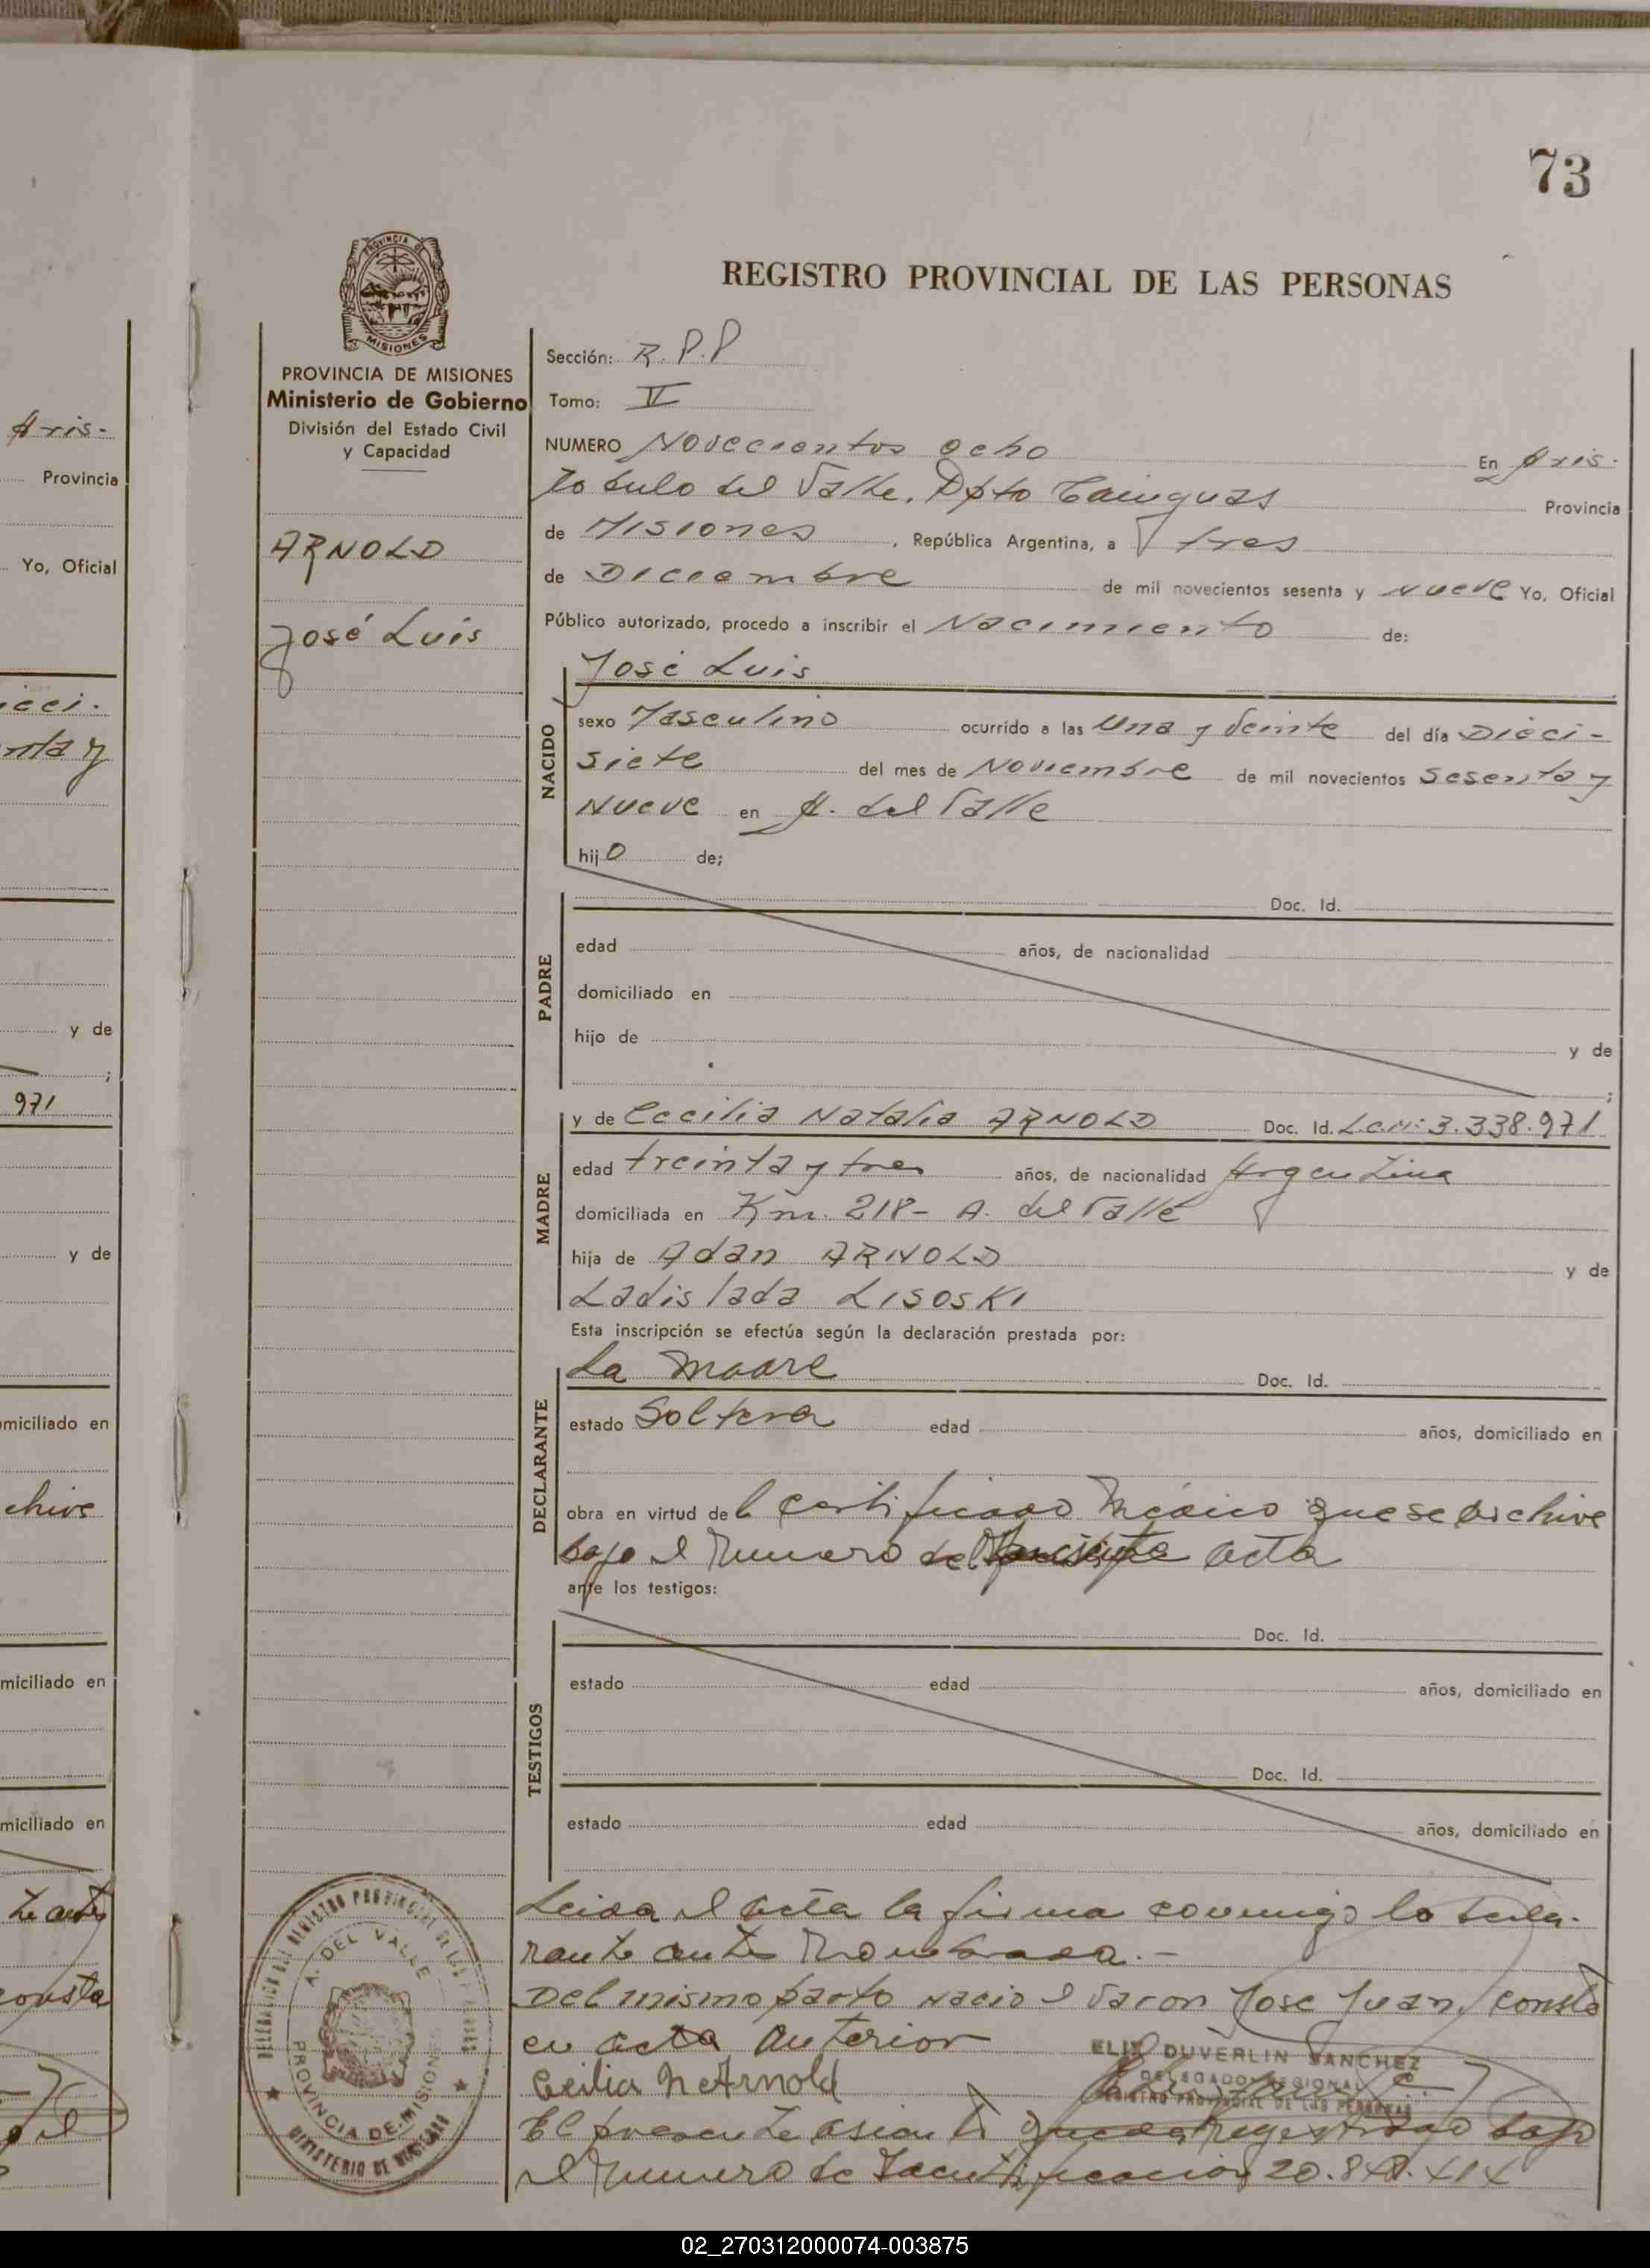 73
REGISTRO PROVINCIAL DE LAS PERSONAS
PROVINCIA DE
MISIONES
PROVINCIA DE MISIONES
Ministerio de Gobierno
División del Estado Civil
y Capacidad
ARNOLD
José Luis
Sección: R.P.P
Tomo: V
NUMERO Novecientos ocho En Aris-
tobulo del Valle, Dpto Cainguas Provincia
de Misiones, República Argentina, a tres
de Diciembre de mil novecientos sesenta y nueve Yo, Oficial
Público autorizado, procedo a inscribir el Nacimiento de:
José Luis
NACIDO
sexo Masculino ocurrido a las Una y Veinte del día Dieci-
siete del mes de Noviembre de mil novecientos Sesenta y
Nueve en A. del Valle
hijo de;
PADRE
Doc. Id.
edad años, de nacionalidad
domiciliado en
hijo de y de
;
MADRE
y de Cecilia Natalia ARNOLD Doc. Id. L.C.N: 3.338.971
edad treinta y tres años, de nacionalidad Argentina
domiciliada en Km. 218- A. del Valle
hija de Adan ARNOLD y de
Ladislada LISOSKI
Esta inscripción se efectúa según la declaración prestada por:
DECLARANTE
La Madre Doc. Id.
estado Soltera edad años, domiciliado en
obra en virtud del Certificado Médico que se archive
bajo el Numero del acta
ante los testigos:
TESTIGOS
Doc. Id.
estado edad años, domiciliado en
Doc. Id.
estado edad años, domiciliado en
Leida el acta la firma conmigo la decla-
rante ante nombrada.-
Del mismo parto nacio el varon Jose Juan, consta
en acta anterior
Cecilia N Arnold
ELIX DUVERLIN SANCHEZ
DELEGADO REGIONAL
REGISTRO PROVINCIAL DE LAS PERSONAS
El presente asiento queda registrado bajo
el Numero de Identificacion 20.8
DELEGACION DEL REGISTRO PROVINCIAL DE LAS PERSONAS
A. DEL VALLE
PROVINCIA DE MISIONES
MINISTERIO DE
Aris-
Provincia
Yo, Oficial
ieci-
nta y
y de
;
971
y de
miciliado en
chive
miciliado en
miciliado en
te antes
consta
02_270312000074-003875